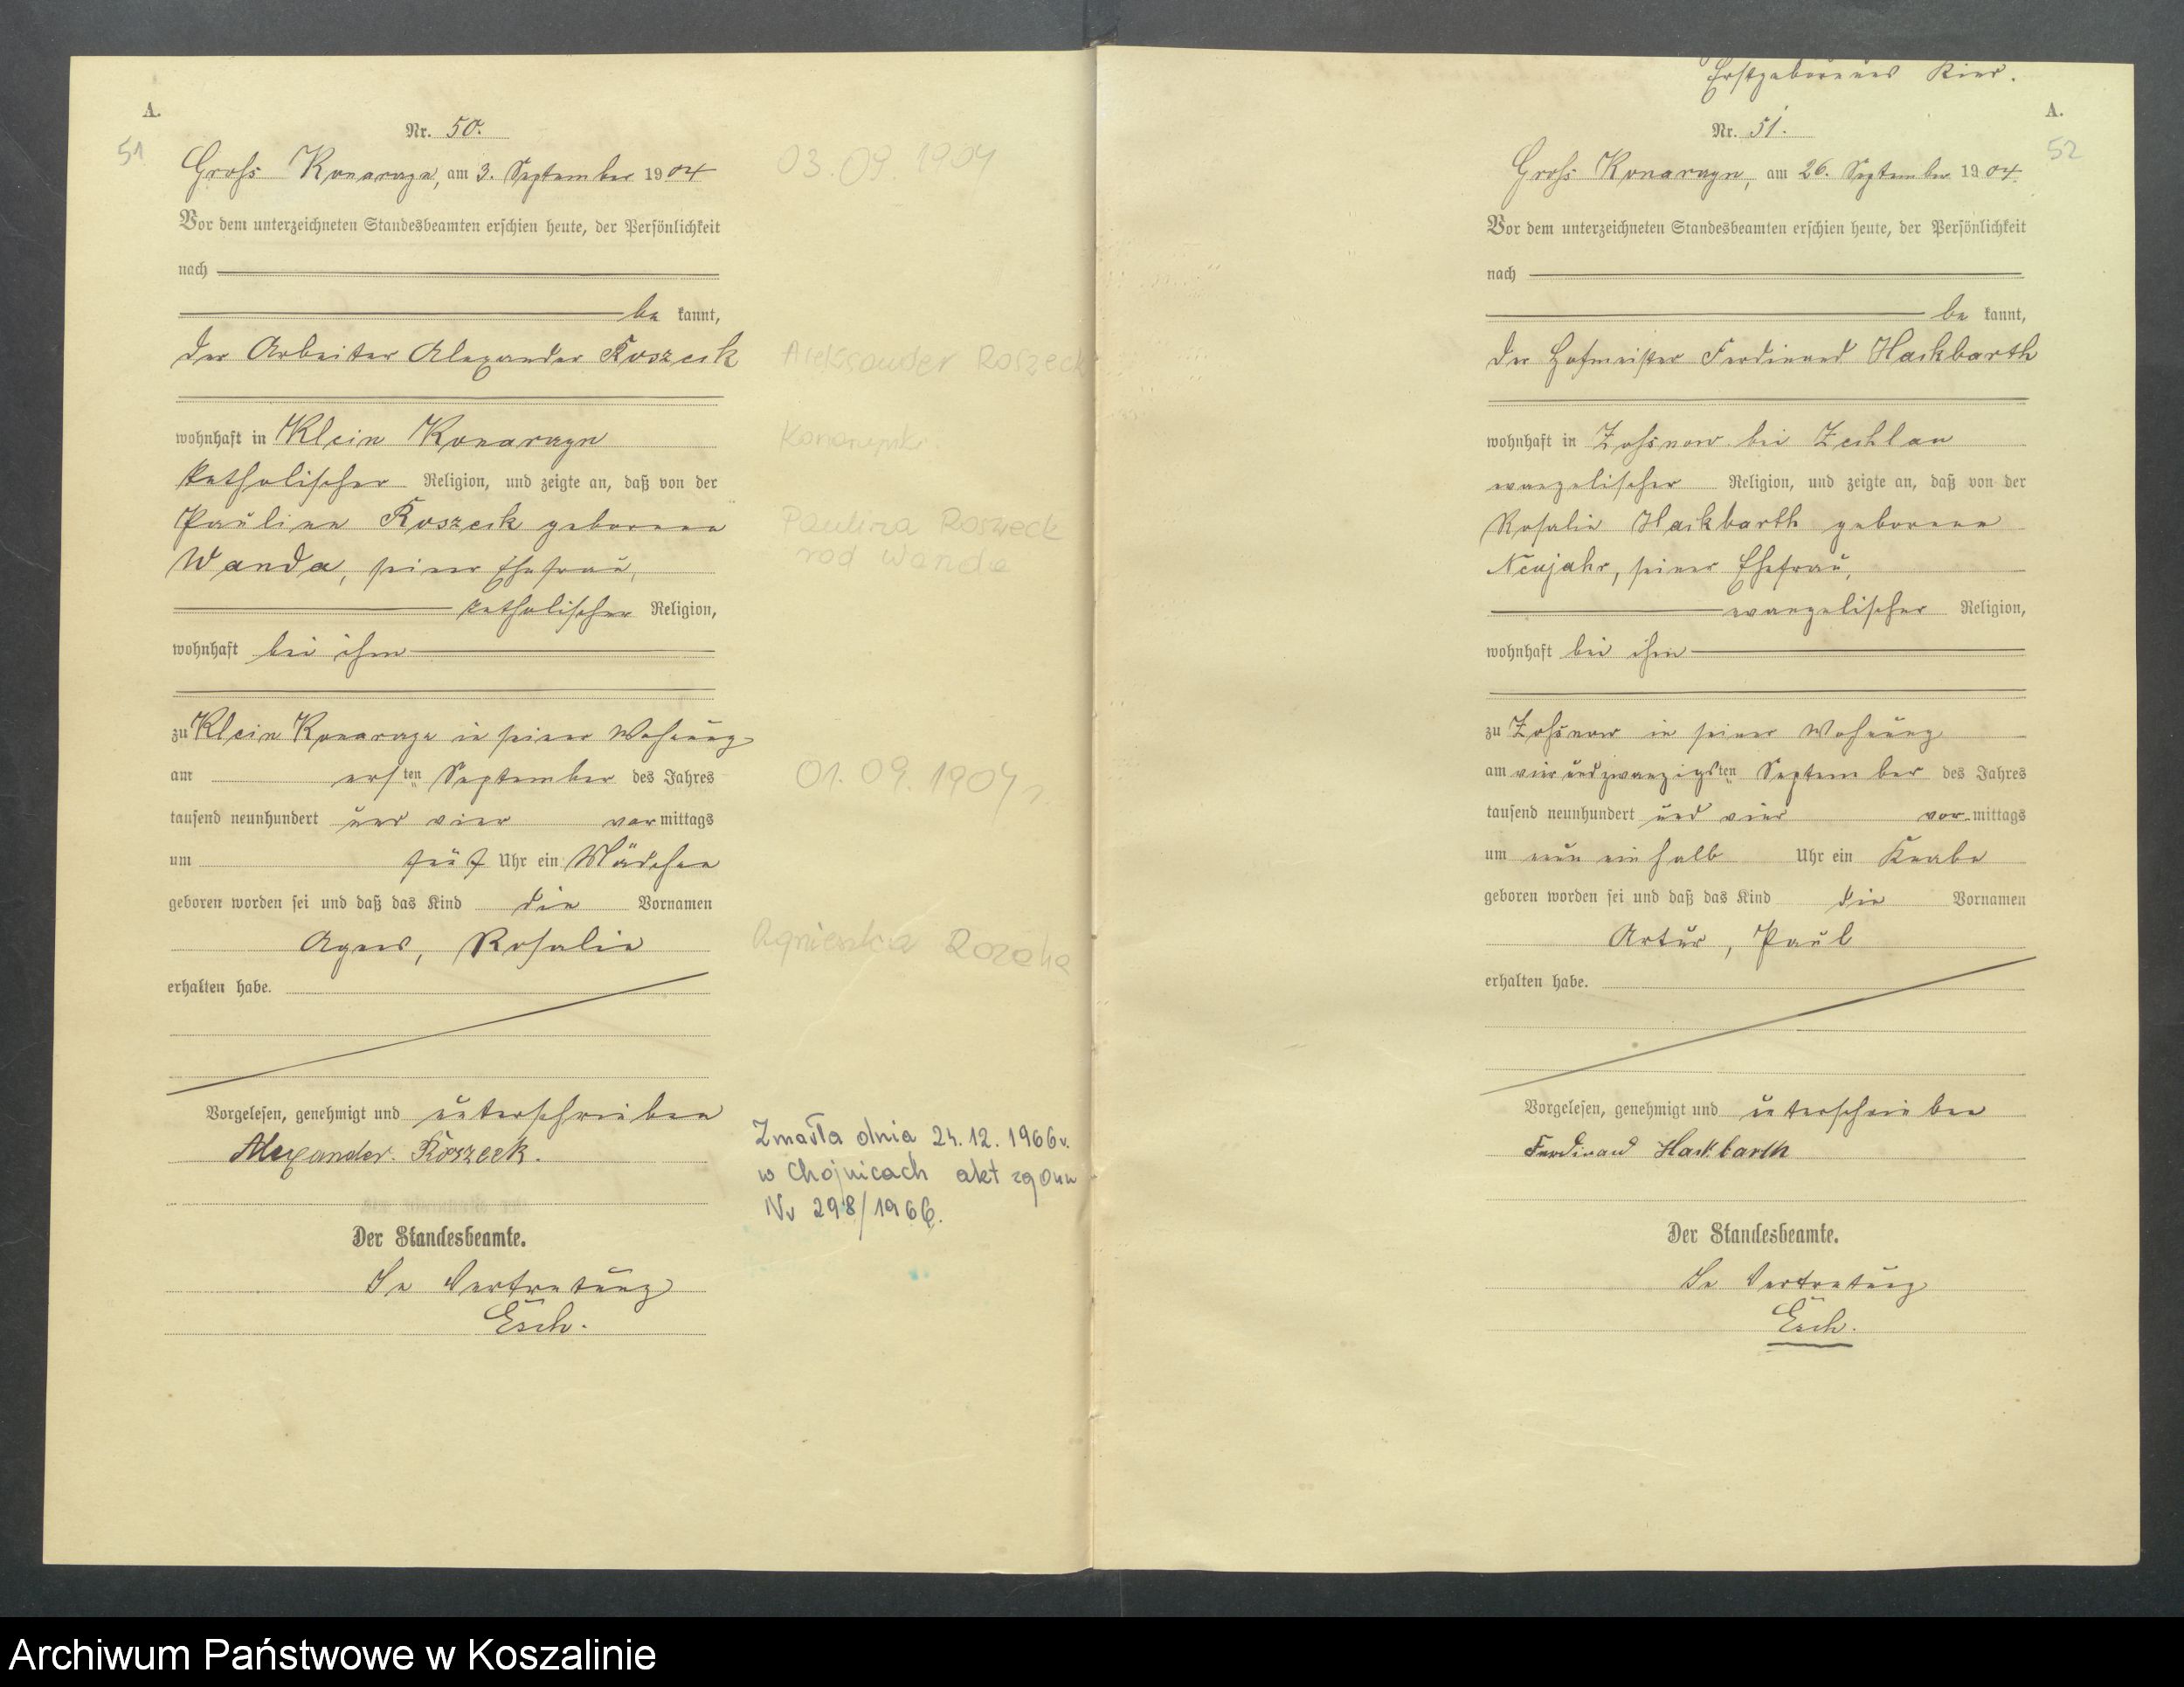 A.
51
Nr. 50.
Groß Konarzyn, am 3. September 1904
Vor dem unterzeichneten Standesbeamten erschien heute, der Persönlichkeit
nach
be kannt,
der Arbeiter Alexander Roszeck
wohnhaft in Klein Konarzyn
katholischer Religion, und zeigte an, daß von der
Pauline Roszeck geborene
Wanda, seiner Ehefrau,
katholischer Religion,
wohnhaft bei ihm
zu Klein Konarzyn in seiner Wohnung
am ersten September des Jahres
tausend neunhundert und vier vormittags
um fünf Uhr ein Mädchen
geboren worden sei und daß das Kind die Vornamen
Agnes, Rosalie
erhalten habe.
Vorgelesen, genehmigt und unterschrieben
Alexander Roszeck.
Der Standesbeamte.
In Vertretung
Esch.
03.09.1904
Aleksander Roszeck
Paulina Roszeck
rod Wanda
01.09.1904 r
Agnieszka Rozalia
Zmarła dnia 24.12.1966r.
w Chojnicach akt zgonu
Nr 298/1966.
Erstgeborenes Kind.
A.
52
Nr. 51.
Groß Konarzyn, am 26. September 1904
Vor dem unterzeichneten Standesbeamten erschien heute, der Persönlichkeit
nach
be kannt,
der Hofmeister Ferdinand Hackbarth
wohnhaft in Zoßnow bei Zechlau
evangelischer Religion, und zeigte an, daß von der
Rosalie Hackbarth geborene
Neujahr, seiner Ehefrau,
evangelischer Religion,
wohnhaft bei ihm
zu Zoßnow in seiner Wohnung
am vierundzwanzigsten September des Jahres
tausend neunhundert und vier vormittags
um neun ein halb Uhr ein Knabe
geboren worden sei und daß das Kind die Vornamen
Artur, Paul
erhalten habe.
Vorgelesen, genehmigt und unterschrieben
Ferdinand Hackbarth
Der Standesbeamte.
In Vertretung
Esch.
Archiwum Państwowe w Koszalinie